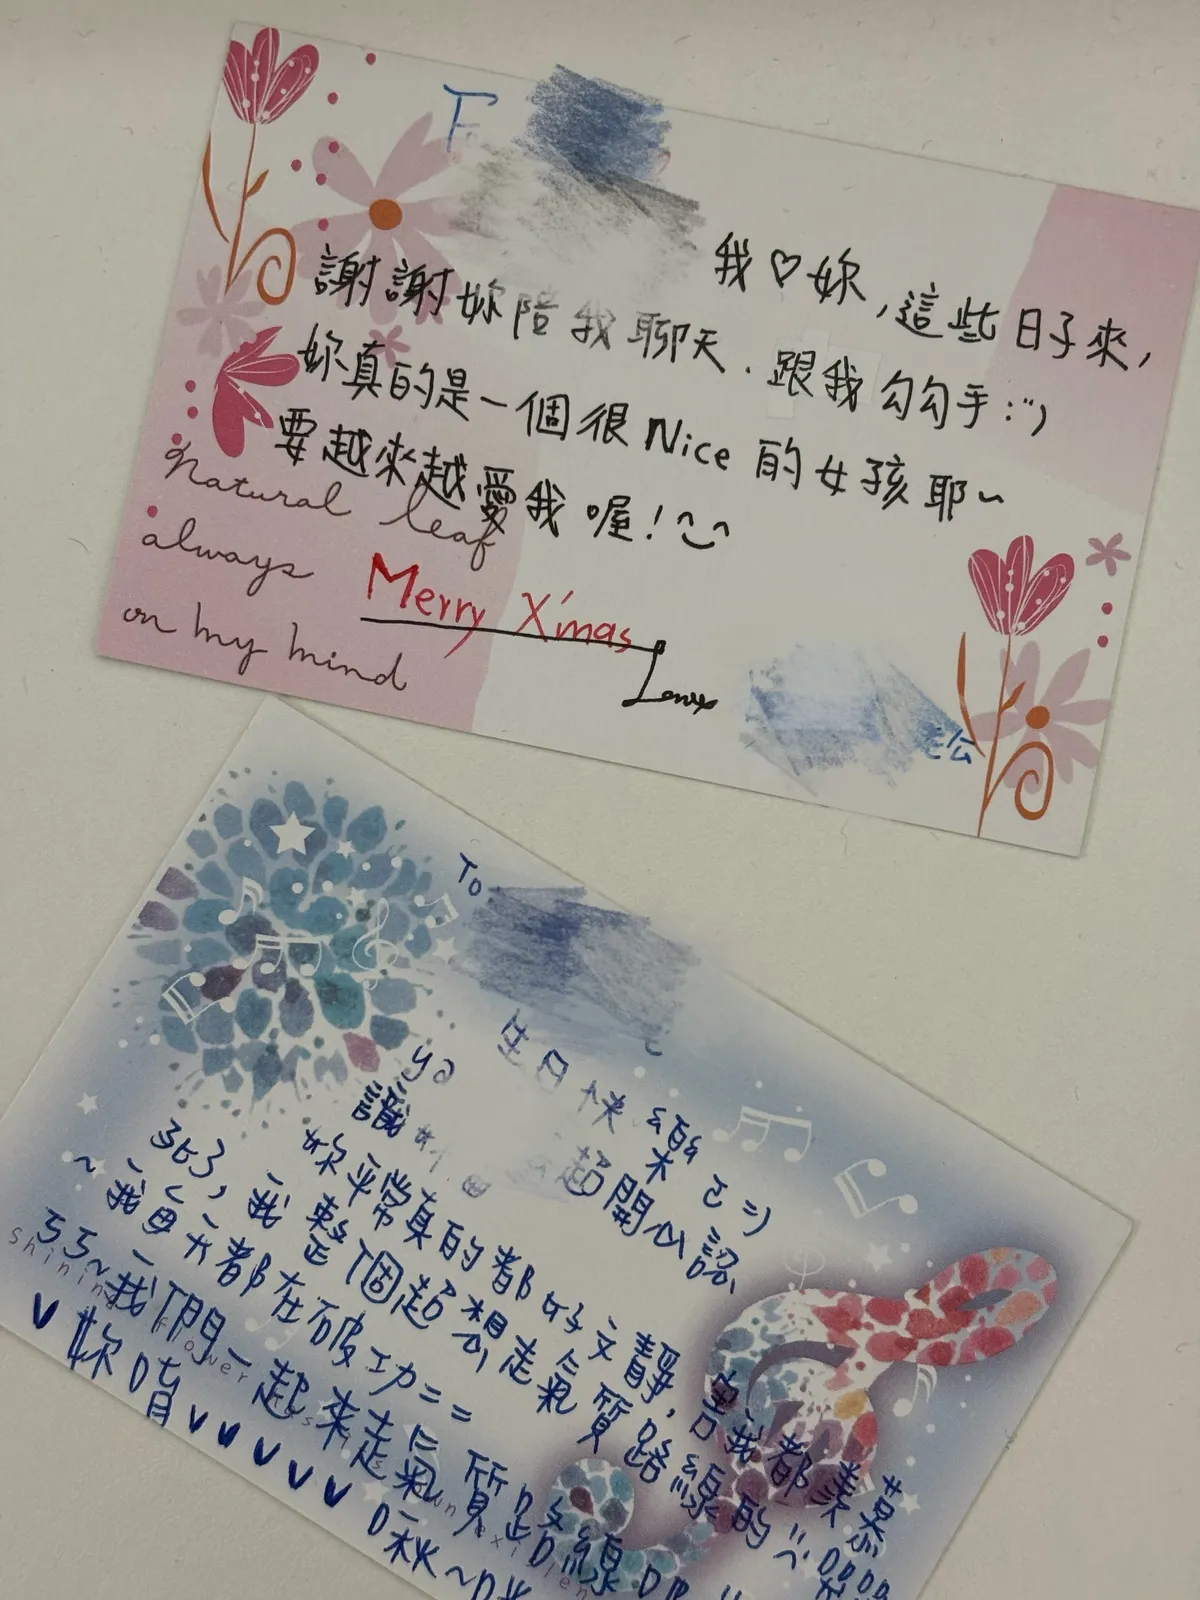 我♡妳,這些日子來,
謝謝妳陪我聊天.跟我勾勾手:")
妳真的是一個很Nice的女孩耶~
要越來越愛我喔!
Natural leaf
always
on my mind
Merry X'mas
老公
To
生日快樂
ya 超開心認
識妳
妳平常真的都好文靜,害我都羨慕
我整個超想走氣質路線的
~我每天都在破功==
ㄎㄎ~我們一起來走氣質路線
shining flower
妳唷vvvvvv